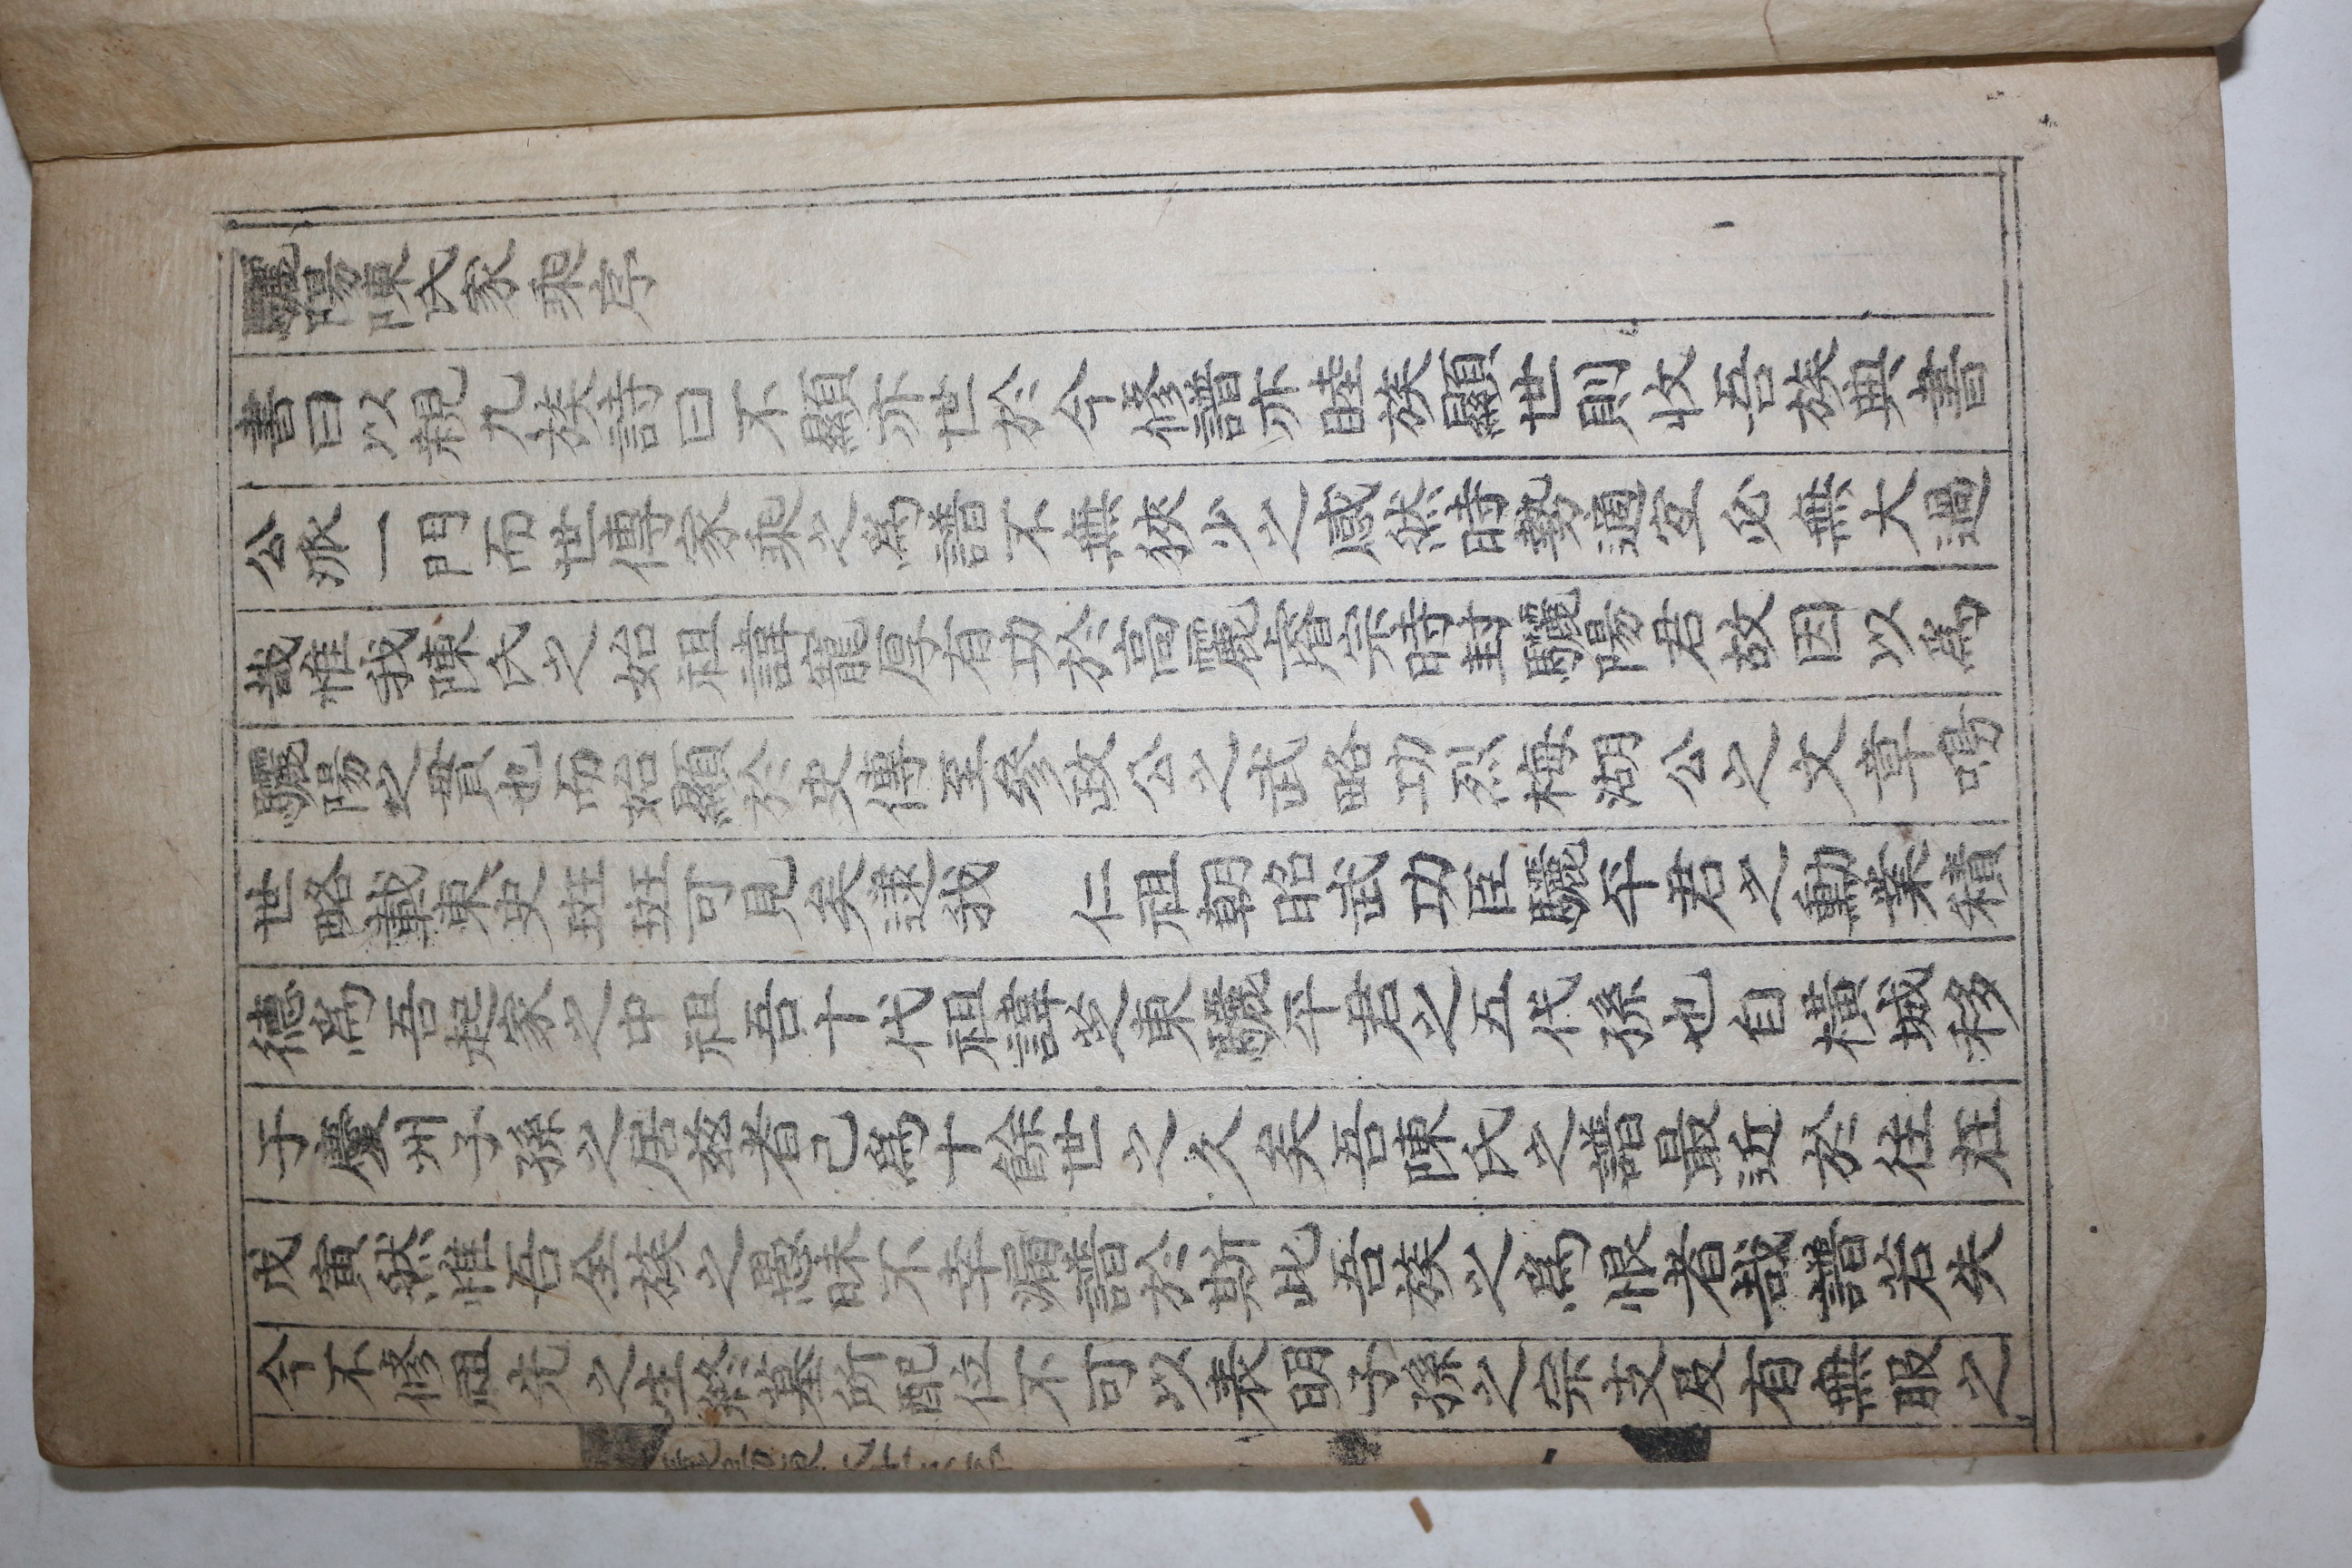 驪陽陳氏家乘序
書曰以親九族詩曰不顯亦世於今修譜亦睦族顯世則收吾族典書
公派一門而世傳家乘之爲譜不無狹少之感然時勢適宜必無大過
哉惟我陳氏之始祖諱寵厚有功於高麗睿宗時封驪陽君故因以爲
驪陽之貫也而始顯於史傳至參政公之武略功烈梅湖公之文章鳴
世略載東史斑斑可見矣逮我 仁祖朝昭武功臣驪平君之勳業積
德爲吾起家之中祖吾十代祖諱芝東驪平君之五代孫也自橫城移
于慶州子孫之居玆者己爲十餘世之久矣吾陳氏之譜最近於往在
戊寅然惟吾全族之愚昧不幸漏譜於斯此吾族之爲恨者哉譜若失
今不修祖先之生終墓所配位不可以表明子孫之宗支及有無服之